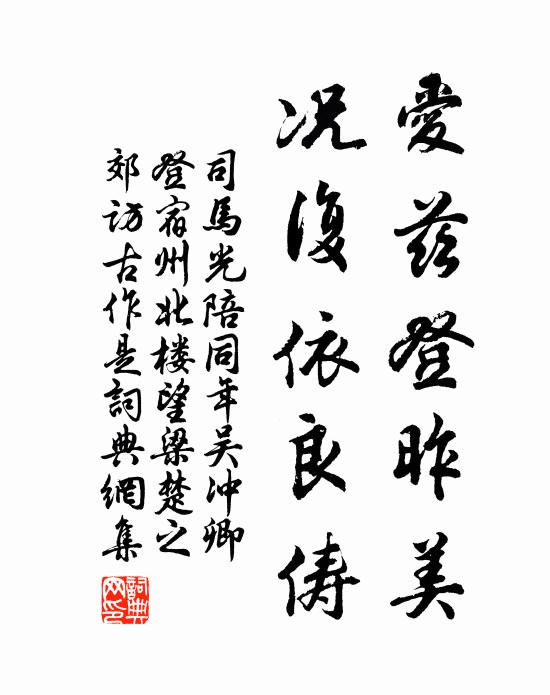 愛茲登昨美
況復依良儔
司馬光陪同年吴沖卿
登宿州北楼望梁楚之
郊訪古作是詞典網集
詞典
网印